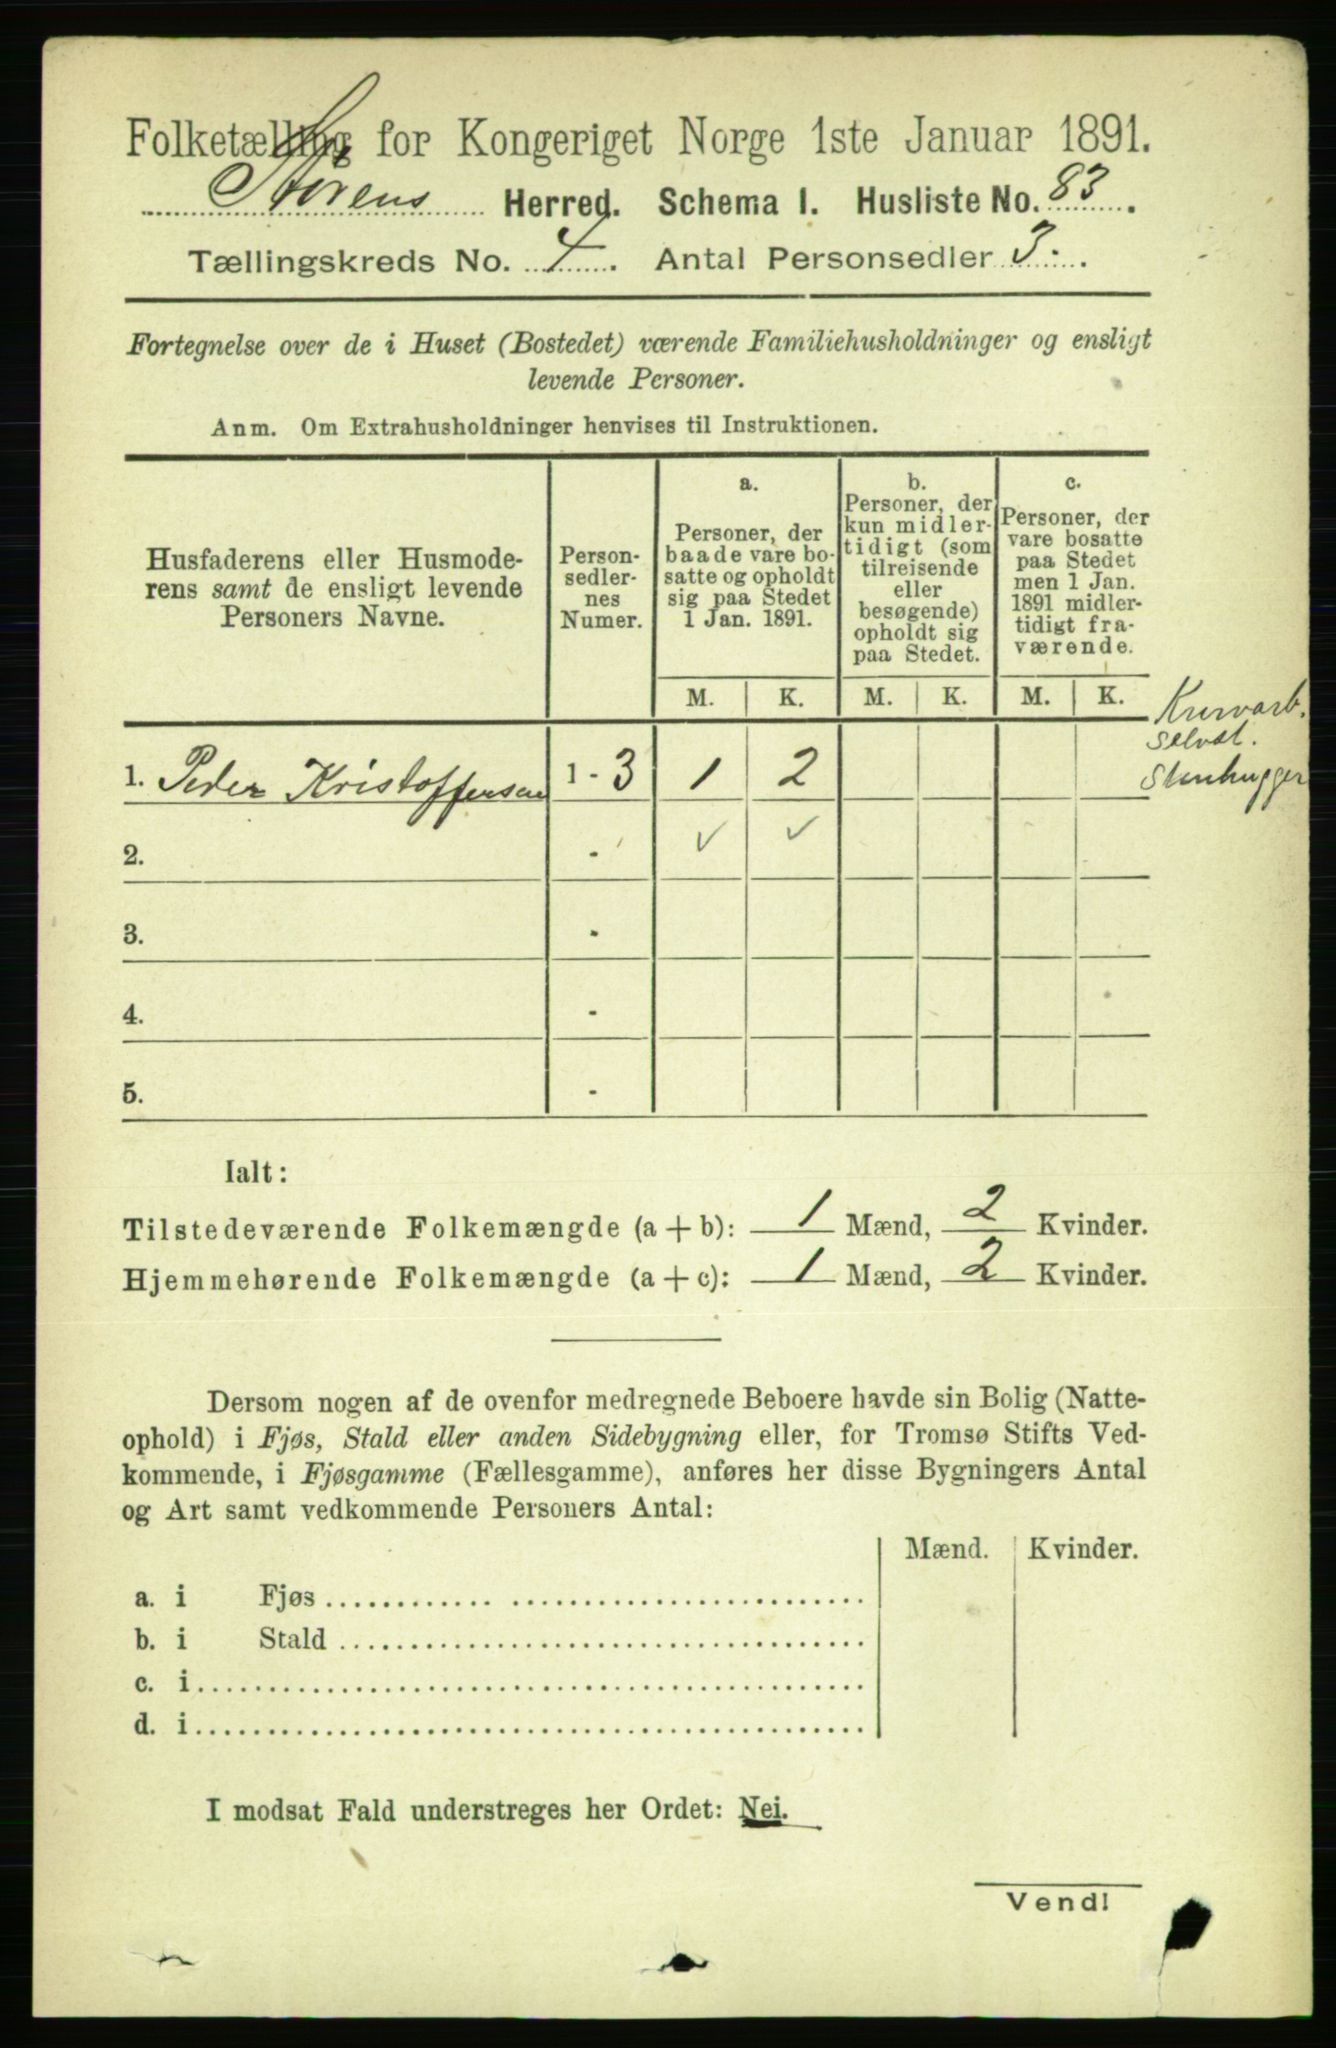 Folketælling for Kongeriget Norge 1ste Januar 1891.
Størens Herred. Schema I. Husliste No. 83.
Tællingskreds No. 4. Antal Personsedler 3.
Fortegnelse over de i Huset (Bostedet) værende Familiehusholdninger og ensligt
levende Personer.
Anm. Om Extrahusholdninger henvises til Instruktionen.
Husfaderens eller Husmode-
rens samt de ensligt levende
Personers Navne.
Person-
sedler-
nes
Numer.
a.
Personer, der
baade vare bo-
satte og opholdt
sig paa Stedet
1 Jan. 1891.
b.
Personer, der
kun midler-
tidigt (som
tilreisende
eller
besøgende)
opholdt sig
paa Stedet.
c.
Personer, der
vare bosatte
paa Stedet
men 1 Jan.
1891 midler-
tidigt fra-
værende.
M. K. M. K. M. K.
Kurvarb.
selvst.
Stenhugger
1. Peder Kristoffersen 1 - 3 1 2
2. - ✓ ✓
3. -
4. -
5. -
Ialt:
Tilstedeværende Folkemængde (a + b): 1 Mænd, 2 Kvinder.
Hjemmehørende Folkemængde (a + c): 1 Mænd, 2 Kvinder.
Dersom nogen af de ovenfor medregnede Beboere havde sin Bolig (Natte-
ophold) i Fjøs, Stald eller anden Sidebygning eller, for Tromsø Stifts Ved-
kommende, i Fjøsgamme (Fællesgamme), anføres her disse Bygningers Antal
og Art samt vedkommende Personers Antal:
Mænd. Kvinder.
a. i Fjøs
b. i Stald
c. i
d. i
I modsat Fald understreges her Ordet: Nei.
Vend!